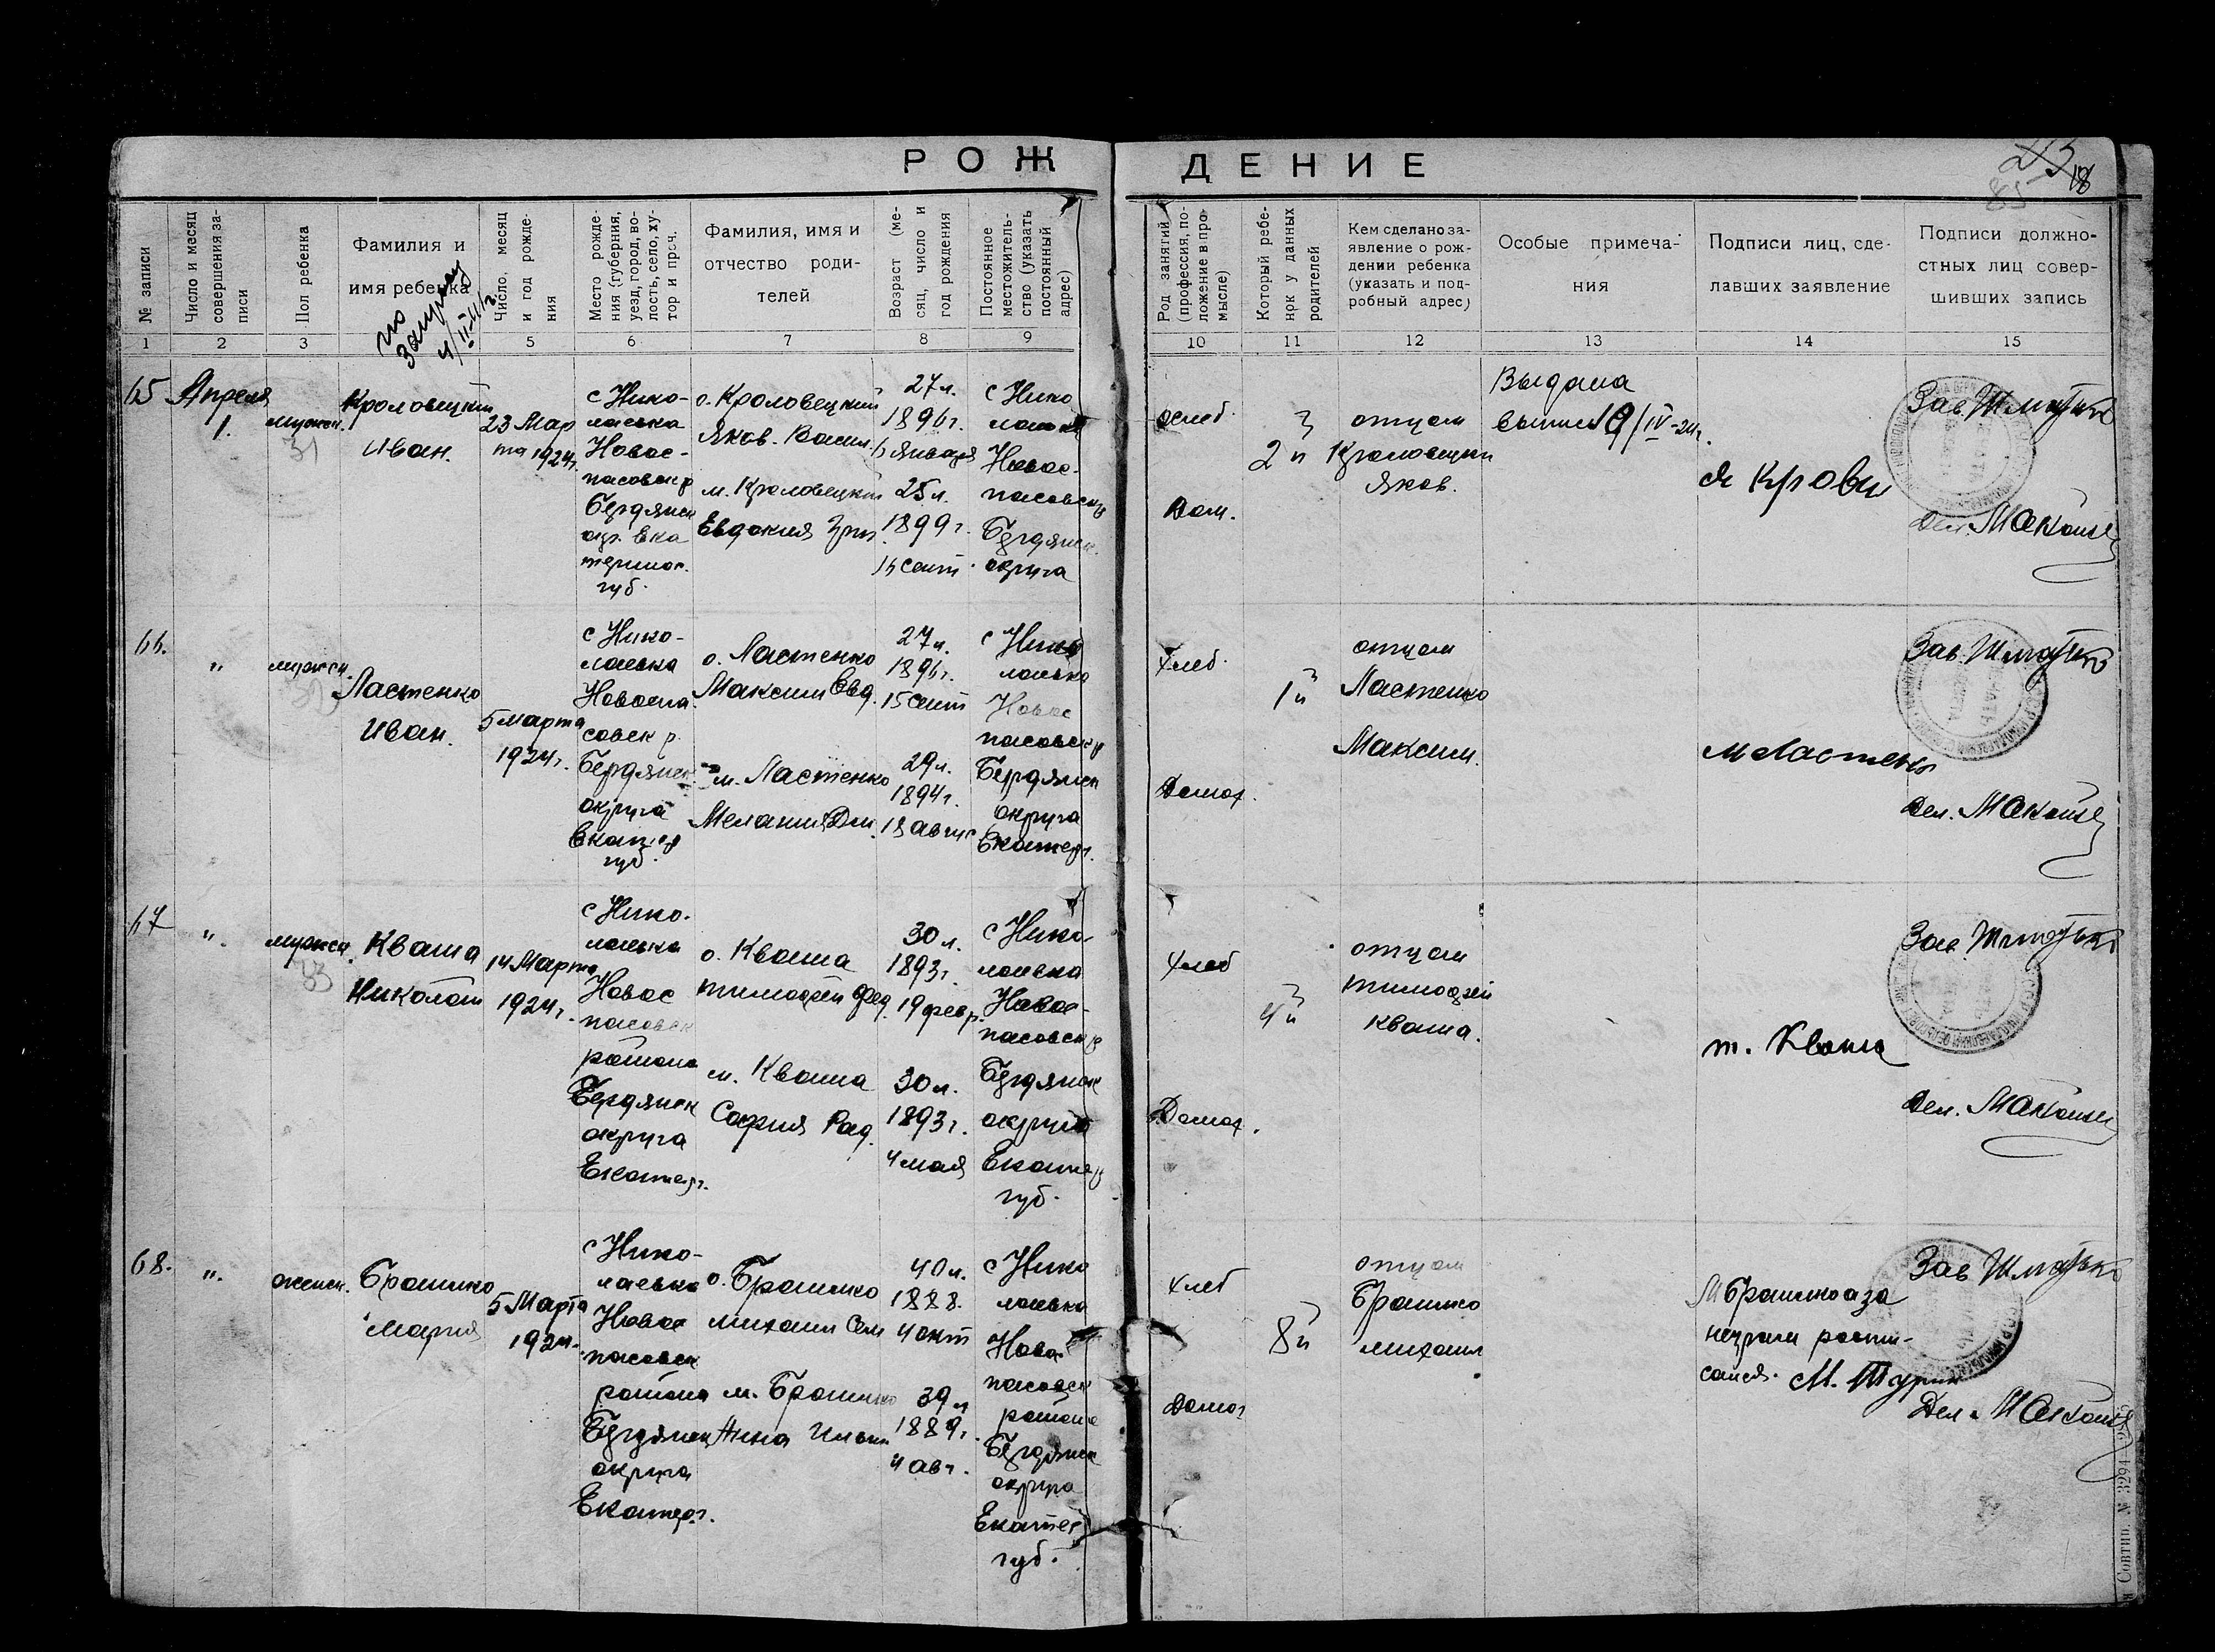 РОЖДЕНИЕ
18
№ записи
Число и месяц совершения записи
Пол ребенка
Фамилия и имя ребенка
по запросу
Число, месяц и год рождения
Место рождения (губерния, уезд, город, волость, село, хутор и проч.
Фамилия, имя и отчество родителей
Возраст (месяц, число и год рождения
Постоянное местожительство (указать постоянный адрес)
Род занятий (профессия, положение в промысле)
Который ребенок у данных родителей
Кем сделано заявление о рождении ребенка (указать и подробный адрес)
Особые примечания
Подписи лиц, сделавших заявление
Подписи должностных лиц совершивших запись
1 2 3 5 6 7 8 9 10 11 12 13 14 15
65
Апреля
1.
мужск.
Кроловецкий
Иван.
23 Мар
та 1924г.
с Нико-
лаевка
Новос-
пасовск р
Бердянск
окр. Ека
теринос.
губ.
о. Кроловецкий
Яков. Васил.
м. Кроловецкий
Евдокия Гри
27 л.
1896г.
6 Января
25 л.
1899г.
16 сент.
с Нико
лаевка
Новос-
пасовск р
Бердянск.
округа
Дом.
2й
отцом
Кроловецки
Яков.
Выдана
выпис 9/IV-24г.
Я Крови
Зав. Шматько
Дел. Макаше
66.
"
мужск.
Ластенко
Иван.
5 марта
1924г.
с Нико-
лаевка
Новоспа
совск р.
Бердянск.
округа
Екатер
губ.
о. Ластенко
Максим Евд.
м. Ластенко
Мелания Дм.
27 л.
1896г.
15 Сент
29 л.
1894г.
18 авгус
с Нико
лаевка
Новос
пасовск р
Бердянск
округа
Екатер.
Хлеб.
Домох.
1й
отцом
Ластенко
Максим.
М Ластенк
Зав. Шматько
Дел. Макаше
67
".
мужск.
Кваша
Николай
14 Марта
1924г.
с Нико-
лаевка
Новос
пасовск
района
Бердянск
округа
Екатер.
о. Кваша
Тимофей Фед.
м. Кваша
София Рад.
30 л.
1893г.
19 февр.
30 л.
1893г.
4 мая
с Нико
лаевка
Новос-
пасовск р
Бердянск
округа
Екатер
губ.
Хлеб
Домох.
4й
отцом
Тимофей
Кваша.
т. Кваша
Зав Шматько
Дел. Макаше
68.
".
женск.
Брашнко
Мария
5 Марта
1924.
с Нико-
лаевка
Новос
пасовск
района
Бердянск
округа
Екатер.
о. Брашнко
Михаил Сем
м. Брашнко
Анна Ильин
40 л.
1888.
4 окт
39 л
1889г.
4 авг.
с Нико
лаевка
Новос
пасовск
района
Бердянск
округа
Екатер
губ.
Хлеб
Домох
8й
отцом
Брашнко
Михаил
М Брашнко а за
неграм распи-
сался. М. Тури
Зав Шматько
Дел. Макаше